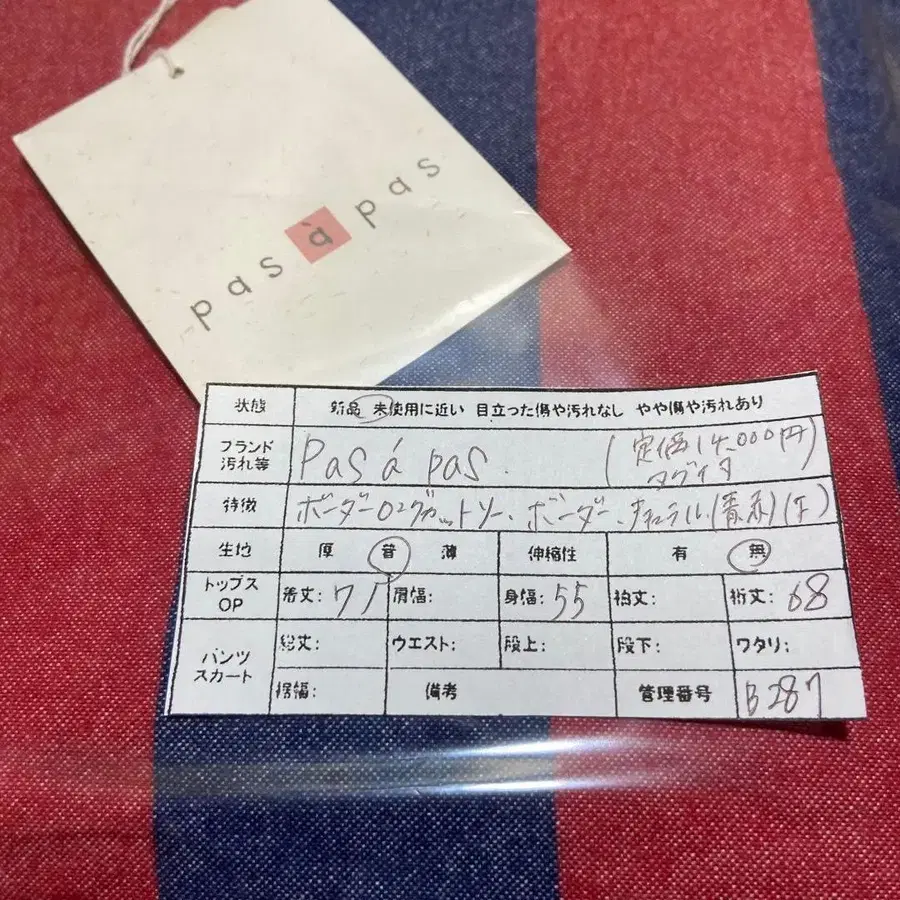 pas à pas
状態 新品 未使用に近い 目立った傷や汚れなし やや傷や汚れあり
ブランド 汚れ等 Pas á pas. (定価14,000円)
タグイタ
特徴 ボーダーロングカットソー、ボーダー、ナチュラル、(青赤)
生地 厚 普 薄 伸縮性 有 無
トップス OP 着丈: 71 肩幅: 身幅: 55 袖丈: 裄丈: 68
パンツ スカート 総丈: ウエスト: 股上: 股下: ワタリ:
裾幅: 備考 管理番号 B287